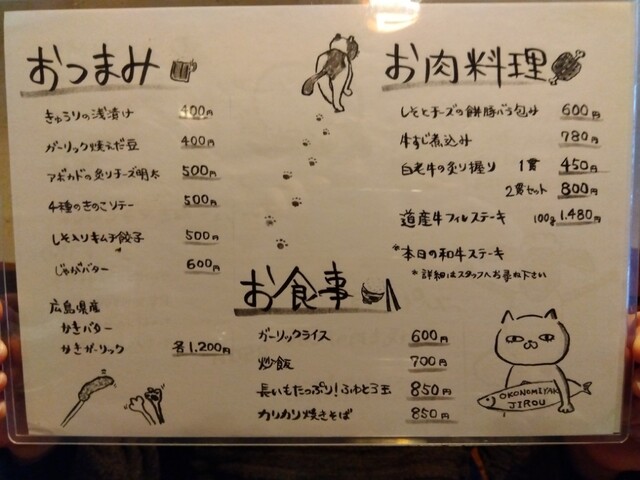 おつまみ
きゅうりの浅漬け 400円
ガーリック焼えだ豆 400円
アボカドの炙りチーズ明太 500円
4種のきのこソテー 500円
しそ入りキムチ餃子 500円
じゃがバター 600円
広島県産
かきバター
かきガーリック 各1,200円
お肉料理
しそとチーズの餅豚バラ包み 600円
牛すじ煮込み 780円
白老牛の炙り握り 1貫 450円
2貫セット 800円
道産牛フィレステーキ 100g 1,480円
*本日の和牛ステーキ
*詳細はスタッフへお尋ね下さい
お食事
ガーリックライス 600円
炒飯 700円
長いもたっぷり!ふわとろ玉 850円
カリカリ焼きそば 850円
OKONOMIYAKI
JIROU